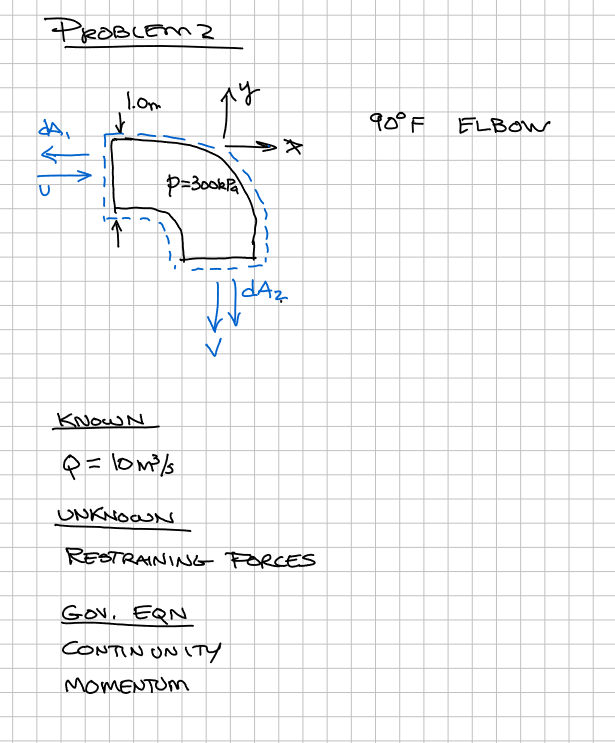 PROBLEM 2
1.0m
y
dA₁
90°F ELBOW
x
P=300kPa
U
dA₂
V
KNOWN
Q = 10 m³/s
UNKNOWN
RESTRAINING FORCES
GOV. EQN
CONTINUNITY
MOMENTUM